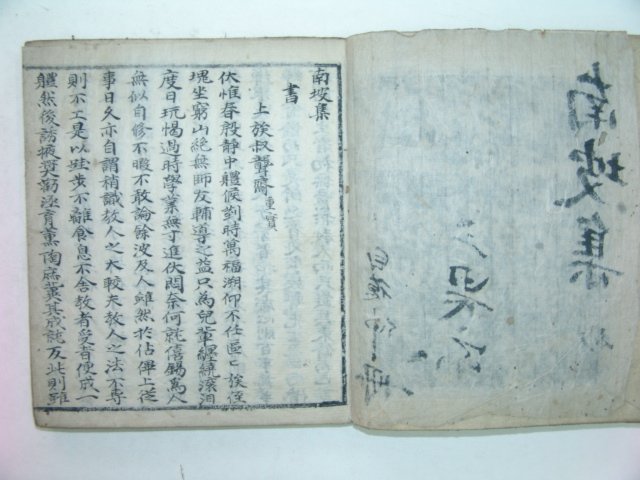 南坡集
南坡集
書
上族叔聾齋重實
伏惟春殷靜中軆候對時萬福溯仰不任區〻族侄
塊坐窮山絶無師友輔導之益只為兒軰纏繞滚汨
度日玩愒過時學業無寸進伏悶奈何就僖錫為人
無似自修不暇不敢論餘波及人雖然於佔僤上從
事日久亦自謂稍識教人之大較夫教人之法不專
則不工是以跬步不離食息不舍教者受者便成一
軆然後誘掖
薰陶
冀其成就反此則雖